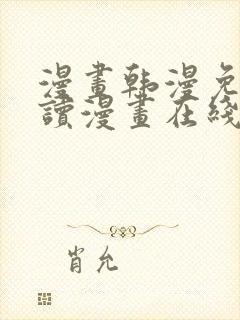 漫畫韩漫免
讀漫畫在綫
肖允